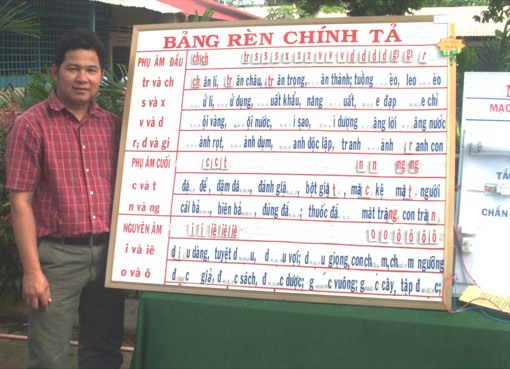 BẢNG RÈN CHÍNH TẢ
PHỤ ÂM ĐẦU ch ch tr s s s x x x v v v d d d d gi gi r
tr và ch ch ân lí, tr ân châu, tr ân trọng, ân thành; tuồng èo, leo èo
s và x ử lí, ử dụng, uất khẩu, năng uất, e đạp e chỉ
v và d ội vàng, ội nước, ì sao, ì dượng, âng lời âng nước
r; d và gi ành rọt, ành dụm, ành độc lập, tranh ành r anh con
PHỤ ÂM CUỐI c c t n n ng ng
c và t đá dế, đậm đà, đánh giá, bớt giá t, mặ c kệ mặ t người
n và ng cái bả, biên bả, đúng đắ, thuốc đắ mặt trăng con trăn
NGUYÊN ÂM i i iê iê iê o o ô ô ô ô
i và iê d ị u dàng, tuyệt d u, d u vợi; d u giọng, con ch m, ch m ngưỡng
o và ô đ c giả, đ c sách, đ c dược; g c vuông; g c cây, tập đ c;
M
MẠC
TẮ
CHẤN